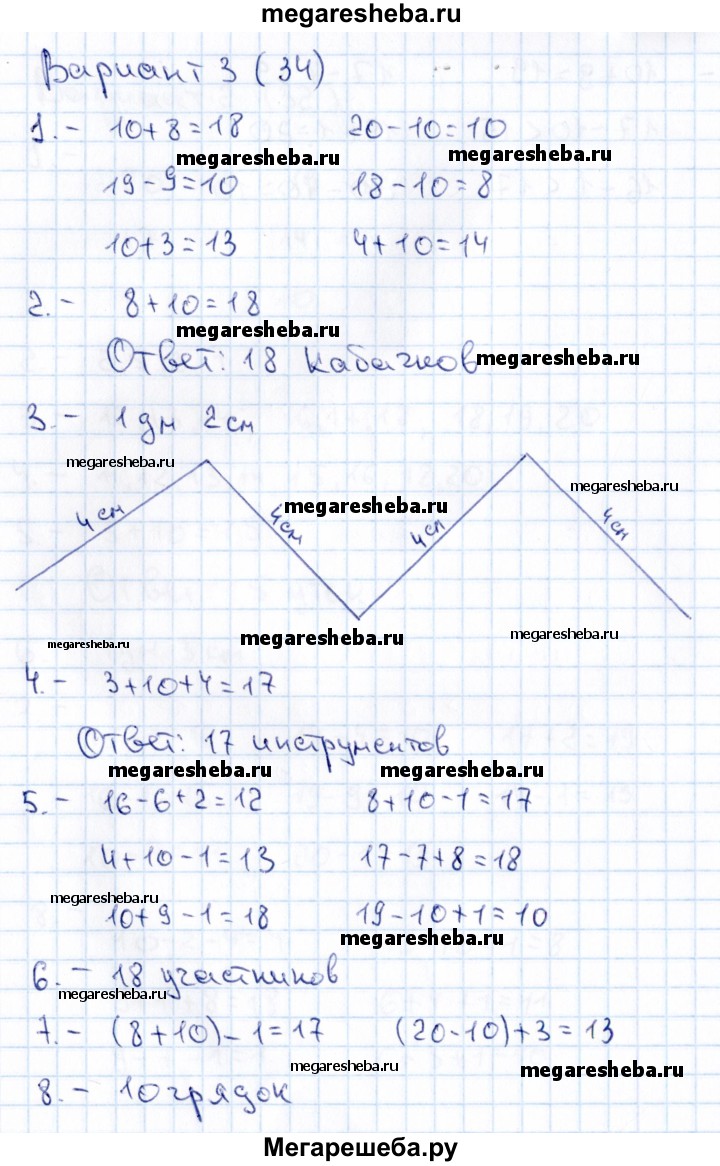 megaresheba.ru
Вариант 3 (34)
1.- 10+8=18 20-10=10
megaresheba.ru megaresheba.ru
19-9=10 18-10=8
10+3=13 4+10=14
2.- 8+10=18
megaresheba.ru
Ответ: 18 кабачков megaresheba.ru
3.- 1 дм 2 см
megaresheba.ru megaresheba.ru
4 см 4 см megaresheba.ru 4 см 4 см
megaresheba.ru megaresheba.ru megaresheba.ru
4.- 3+10+4=17
Ответ: 17 инструментов
megaresheba.ru megaresheba.ru
5.- 16-6+2=12 8+10-1=17
4+10-1=13 17-7+8=18
megaresheba.ru
10+9-1=18 19-10+1=10
megaresheba.ru
6.- 18 участников
megaresheba.ru
7.- (8+10)-1=17 (20-10)+3=13
megaresheba.ru megaresheba.ru
8.- 10 грядок
Мегарешеба.ру